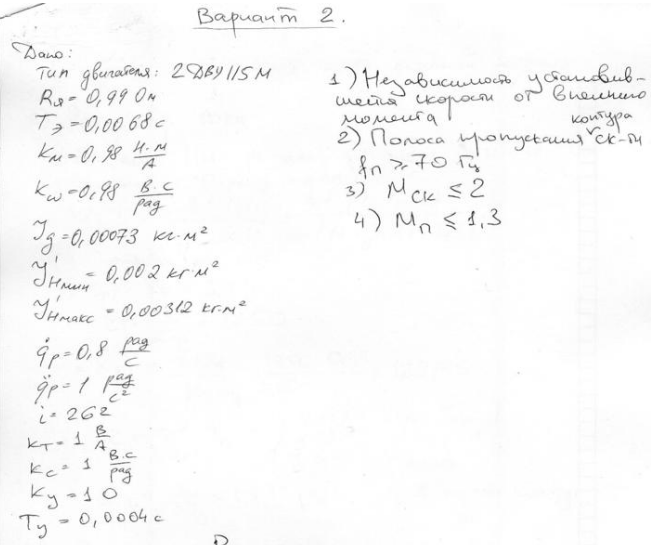 Вариант 2.
Дано:
Тип двигателя: 2ДВУ115М
Rя = 0,99 Ом
Tэ = 0,0068 с
kм = 0,98 Н·м/А
kω = 0,98 В·с/рад
Jд = 0,00073 кг·м²
J'Нмин = 0,002 кг·м²
J'Нмакс = 0,00312 кг·м²
q̇р = 0,8 рад/с
q̈р = 1 рад/с²
i = 262
kт = 1 В/А
kс = 1 В·с/рад
kу = 10
Tу = 0,0004 с
1) Независимость установив-
шейся скорости от внешнего
момента
2) Полоса пропускания контура ск-ти
fп ≥ 70 Гц
3) Mск ≤ 2
4) Mп ≤ 1,3